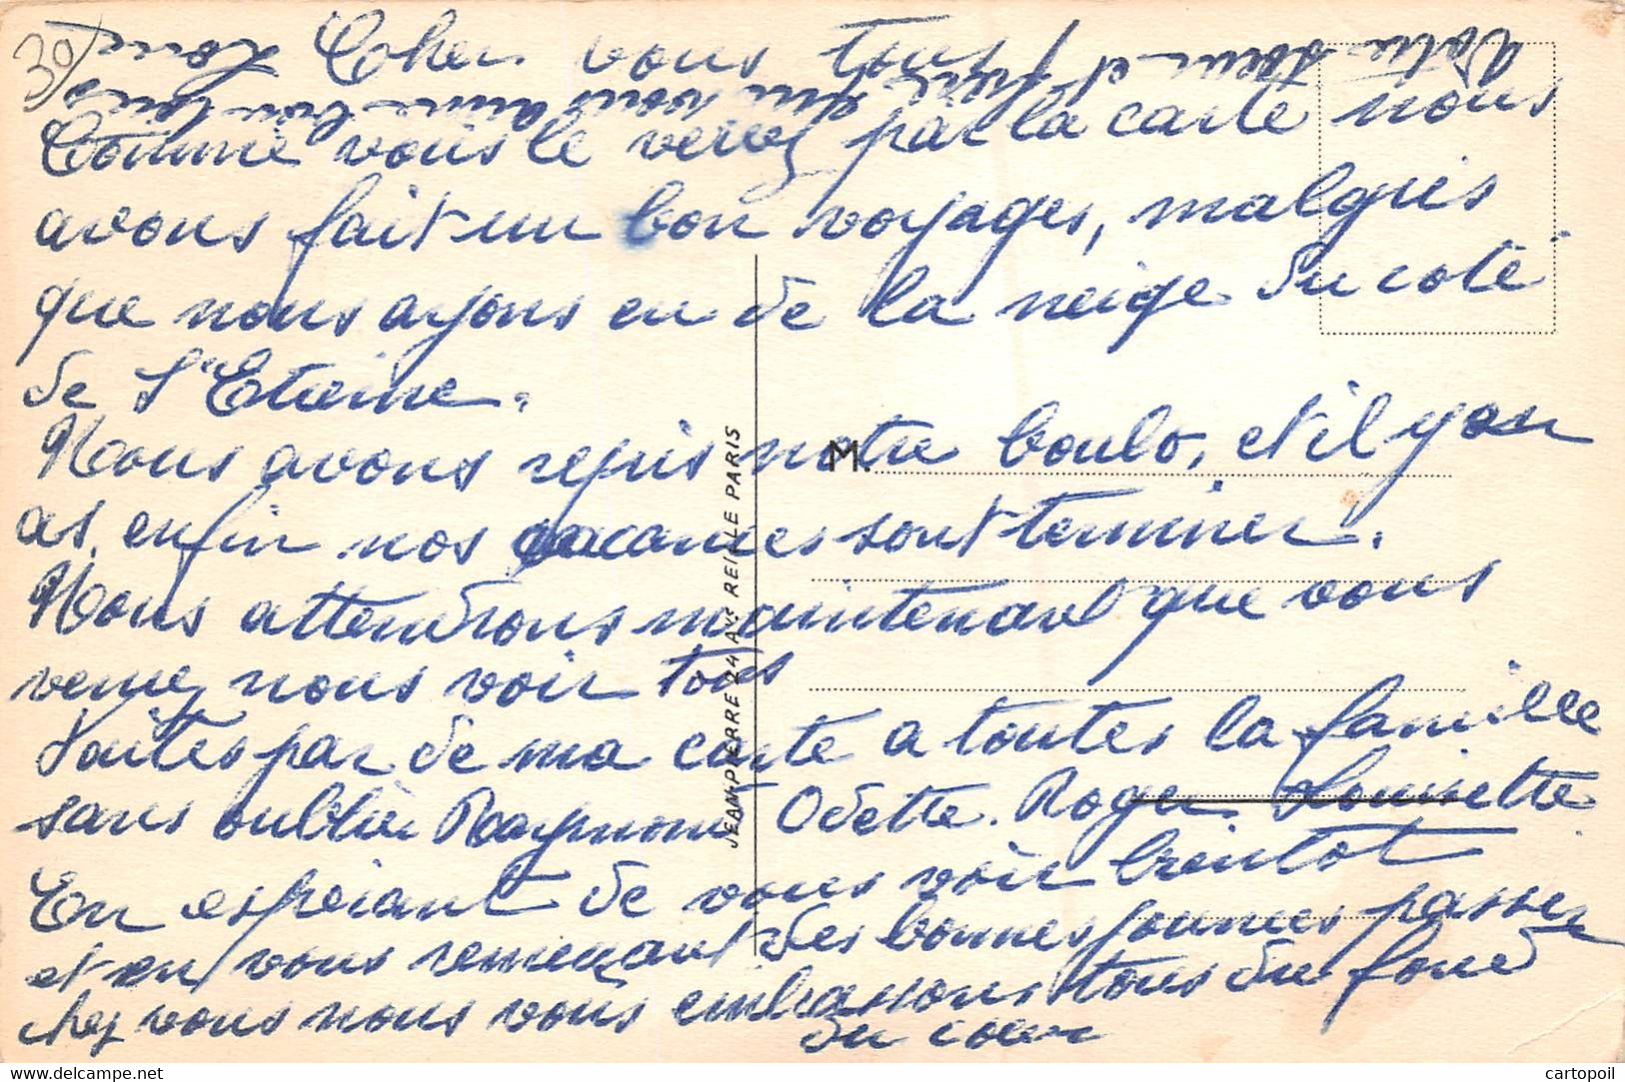 30
Cher vous tous
Comme vous le verrez par la carte nous
avons fait un bon voyages, malgrés
que nous ayons eu de la neige du coté
de St Etienne.
Nous avons repris notre boulo, et il y en
as, enfin nos vacances sont terminer.
Nous attendrons maintenant que vous
venez nous voir tous
Faites par de ma carte a toutes la famille
sans oublier Raymond Odette. Roger Louisette
En esperant de vous voir bientot
et en vous remerçant des bonnes journees passer
chez vous nous vous embrassons tous du fond
du coeur
Votre soeur et frère
qui vous aime bien tous
M.
JEAN-PIERRE 24 Av. REILLE PARIS
delcampe.net
cartopoil